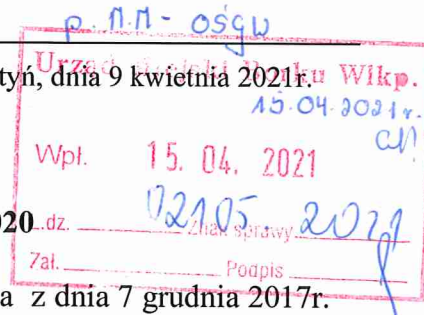 p. M.M - ośgw
tyń, dnia 9 kwietnia 2021r.
Urząd Borku Wlkp.
15.04.2021r.
Wpł. 15. 04. 2021
020
dz. 02105. 2021
Znak sprawy
Zał. Podpis
a z dnia 7 grudnia 2017r.